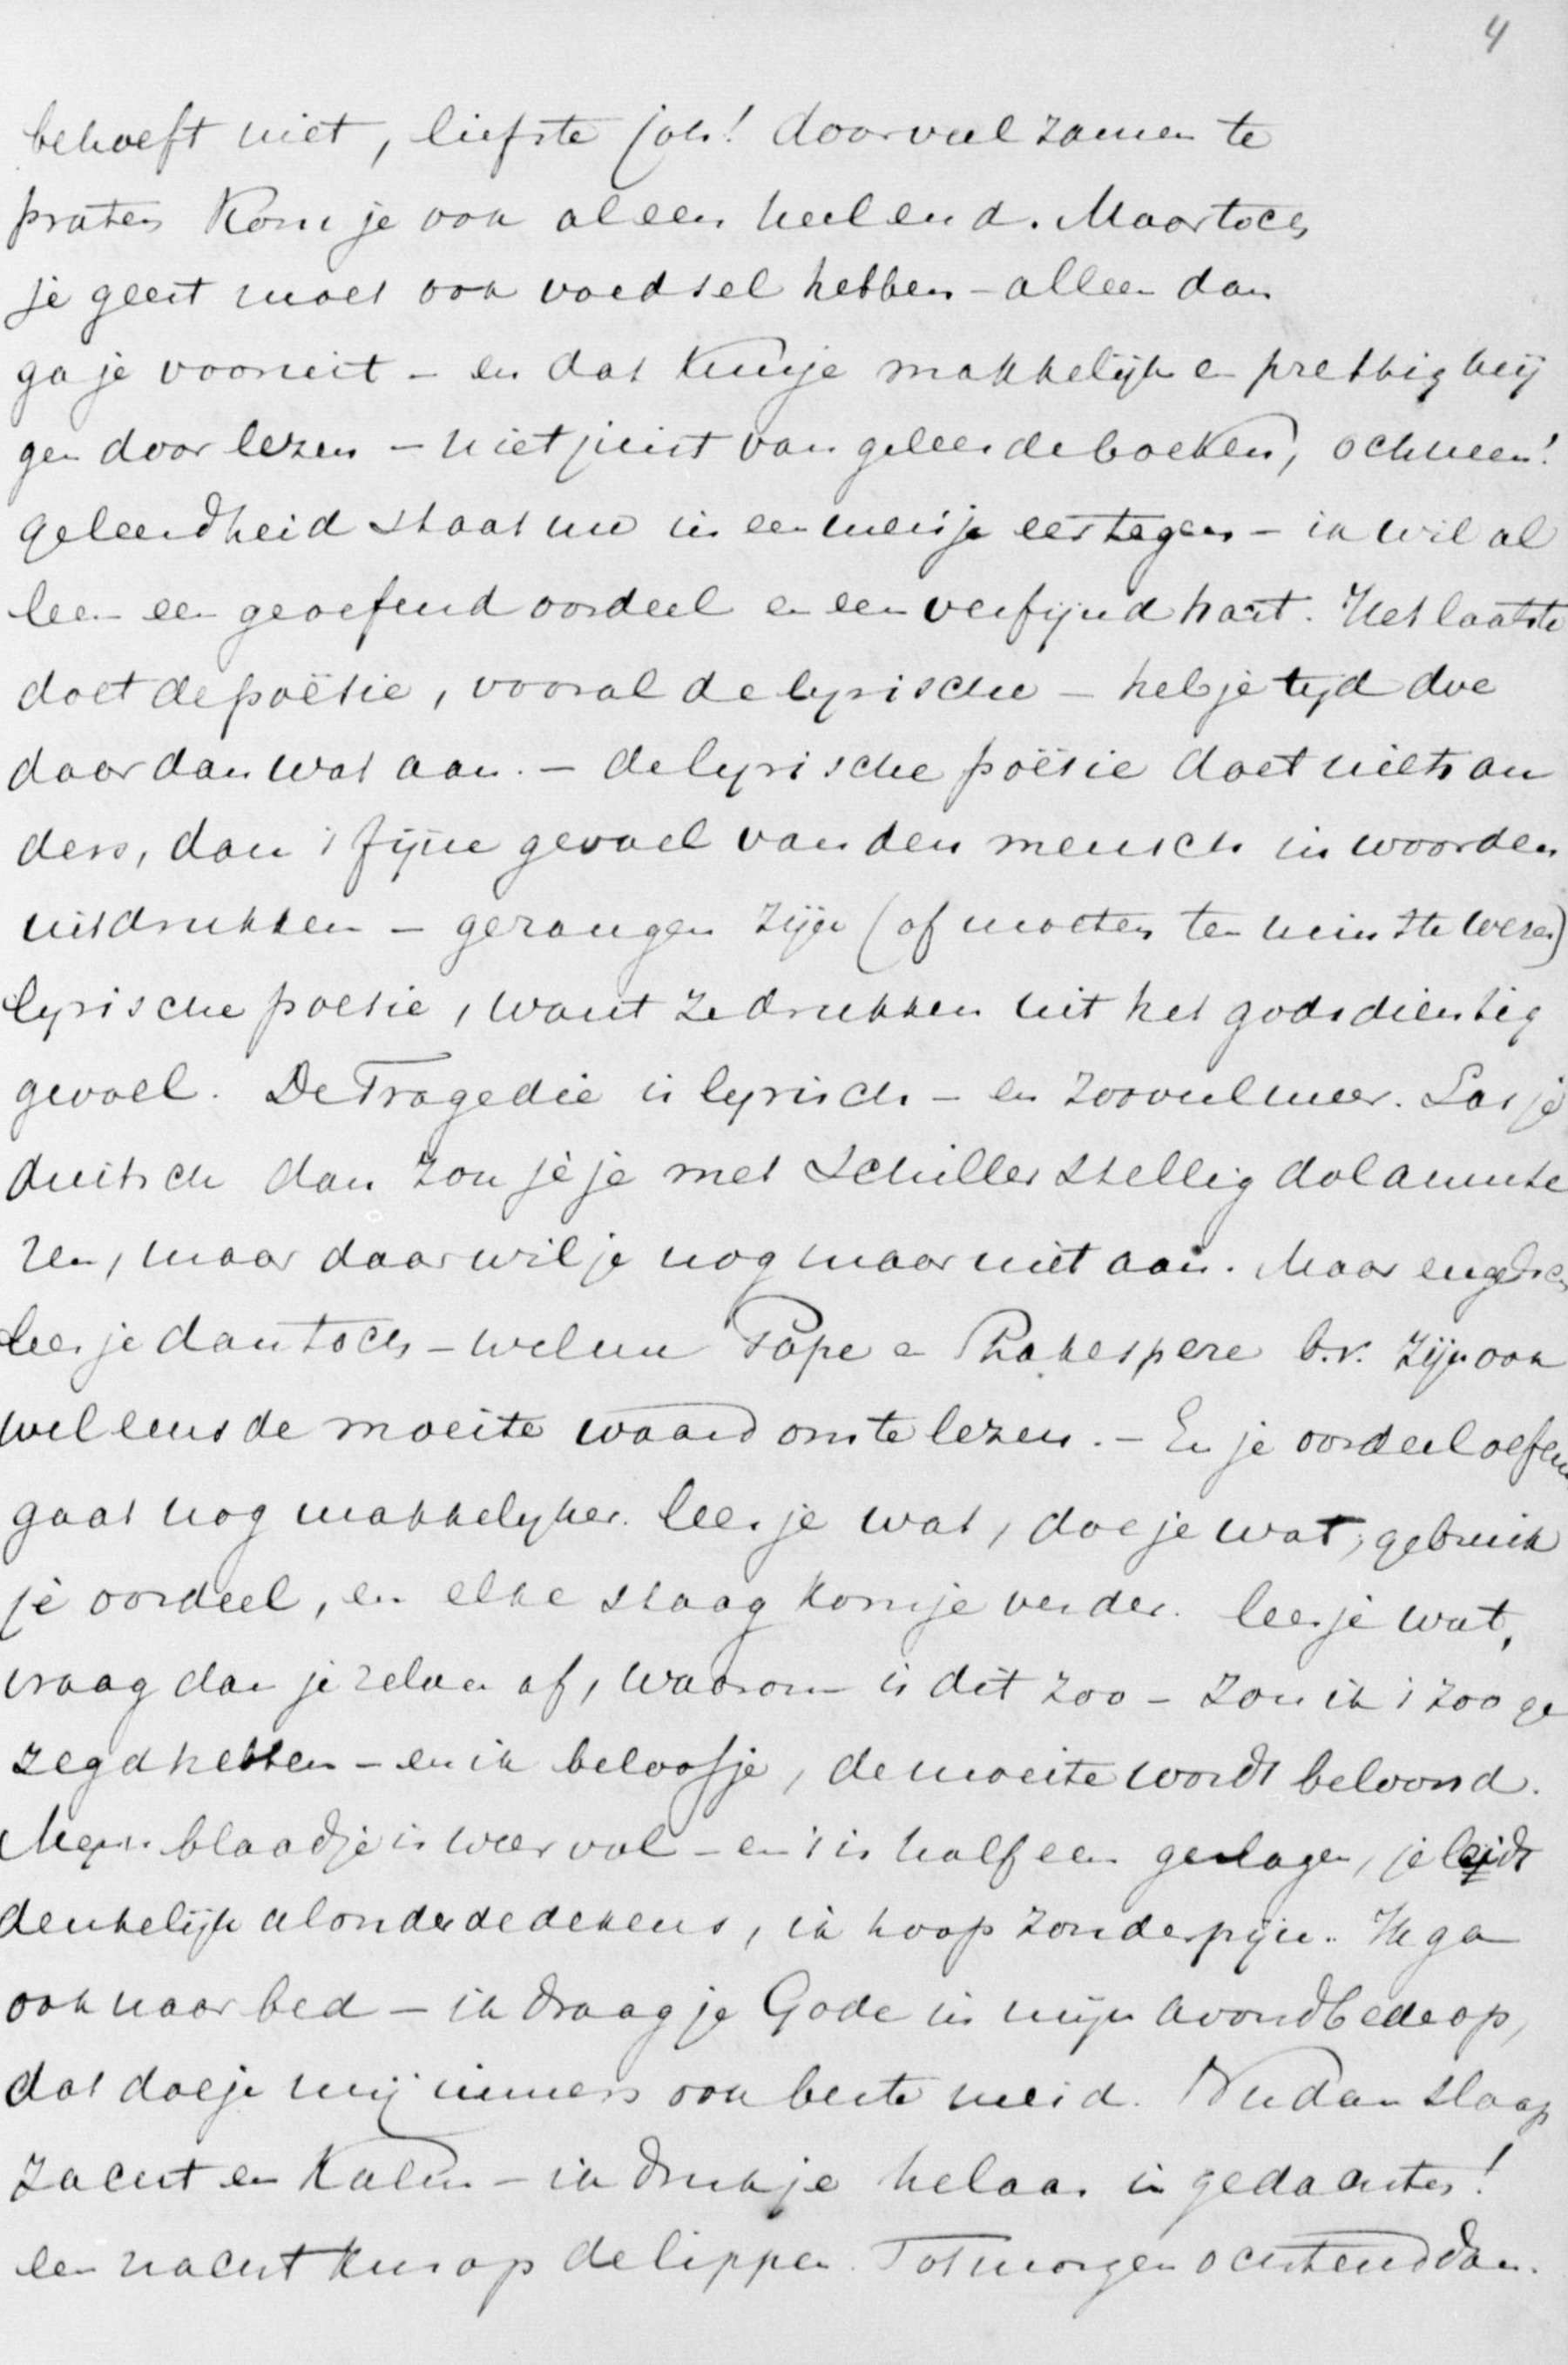 4
behoeft niet, liefste Joh! door veel zamen te
praten kom je ook al een heel end. Maar toch
je geest moet ook voedsel hebben - alleen dan
ga je vooruit - en dat kun je makkelijk en prettig krij
gen door lezen - niet juist van geleerde boeken, och neen!
geleerdheid staat me in een meisje eer tegen - ik wil al
leen een geoefend oordeel en een verfijnd hart. Het laatste
doet de poësie, vooral de lyrische - heb je tyd doe
daar dan wat aan. - de lyrische poësie doet niets an
ders, dan 't fijne gevoel van den mensch in woorden
uitdrukken - gezangen zijn (of moeten ten minste wezen)
lyrische poesie, want ze drukken uit het godsdienstig
gevoel. De Tragedie is lyrisch - en zooveel meer. Las je
duitsch dan zou je je met Schiller stellig dol amuse
ren, maar daar wil je nog maar niet aan. Maar engelsch
lees je dan toch - welnu Pope en Shakespere b.v. zijn ook
wel eens de moeite waard om te lezen. - En je oordeel oefenen
gaat nog makkelyker. lees je wat, doe je wat, gebruik
je oordeel, en elke slaag kom je verder. lees je wat,
vraag dan je zelven af, waarom is dit zoo - zou ik 't zoo ge
zegd hebben - en ik beloof je, de moeite wordt beloond.
Mijn blaadje is weer vol - en 't is half een geslagen, je leidt
denkelijk al onder de dekens, ik hoop zonder pijn. Ik ga
ook naar bed - ik draag je Gode in mijn avondbede op,
dat doe je mij immers ook beste meid. Nu dan slaap
zacht en kalm - ik druk je helaas in gedachten!
een nacht kus op de lippen. Tot morgen ochtend dan.